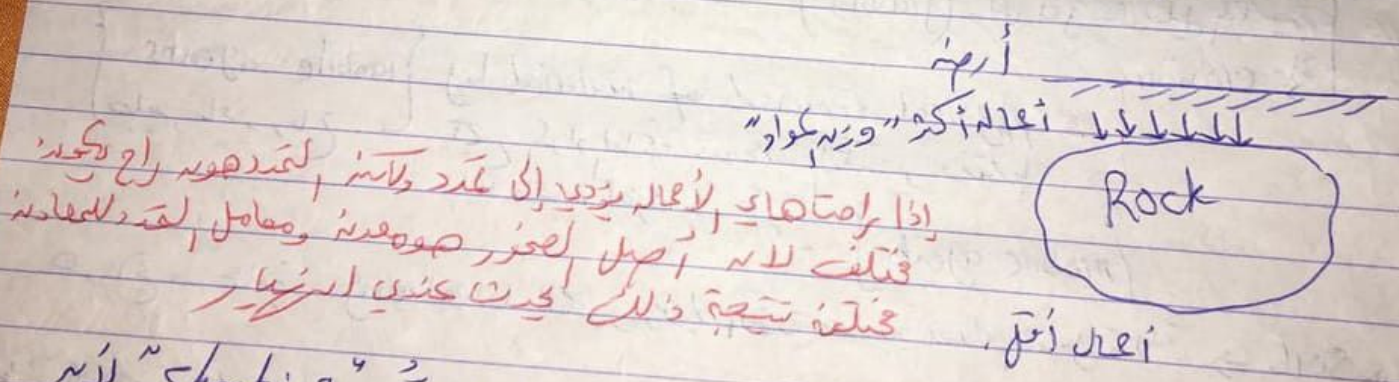 أرض
أحمال أكثر "وزن المواد"
Rock
إذا راحت هاي الأحمال يؤدي إلى تمدد ولكن التمدد هون راح يكون
مختلف لأن أصل الصخور هو معدن ومعامل التمدد للمعادن
مختلفة نتيجة ذلك يحدث عندي انهيار
أحمال أقل.
لأن